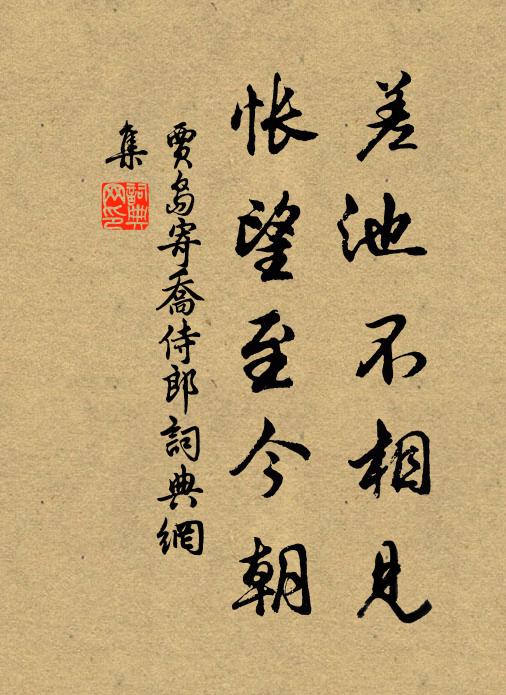 差池不相見
悵望至今朝
賈島寄喬侍郎詞典網
集
詞典網印